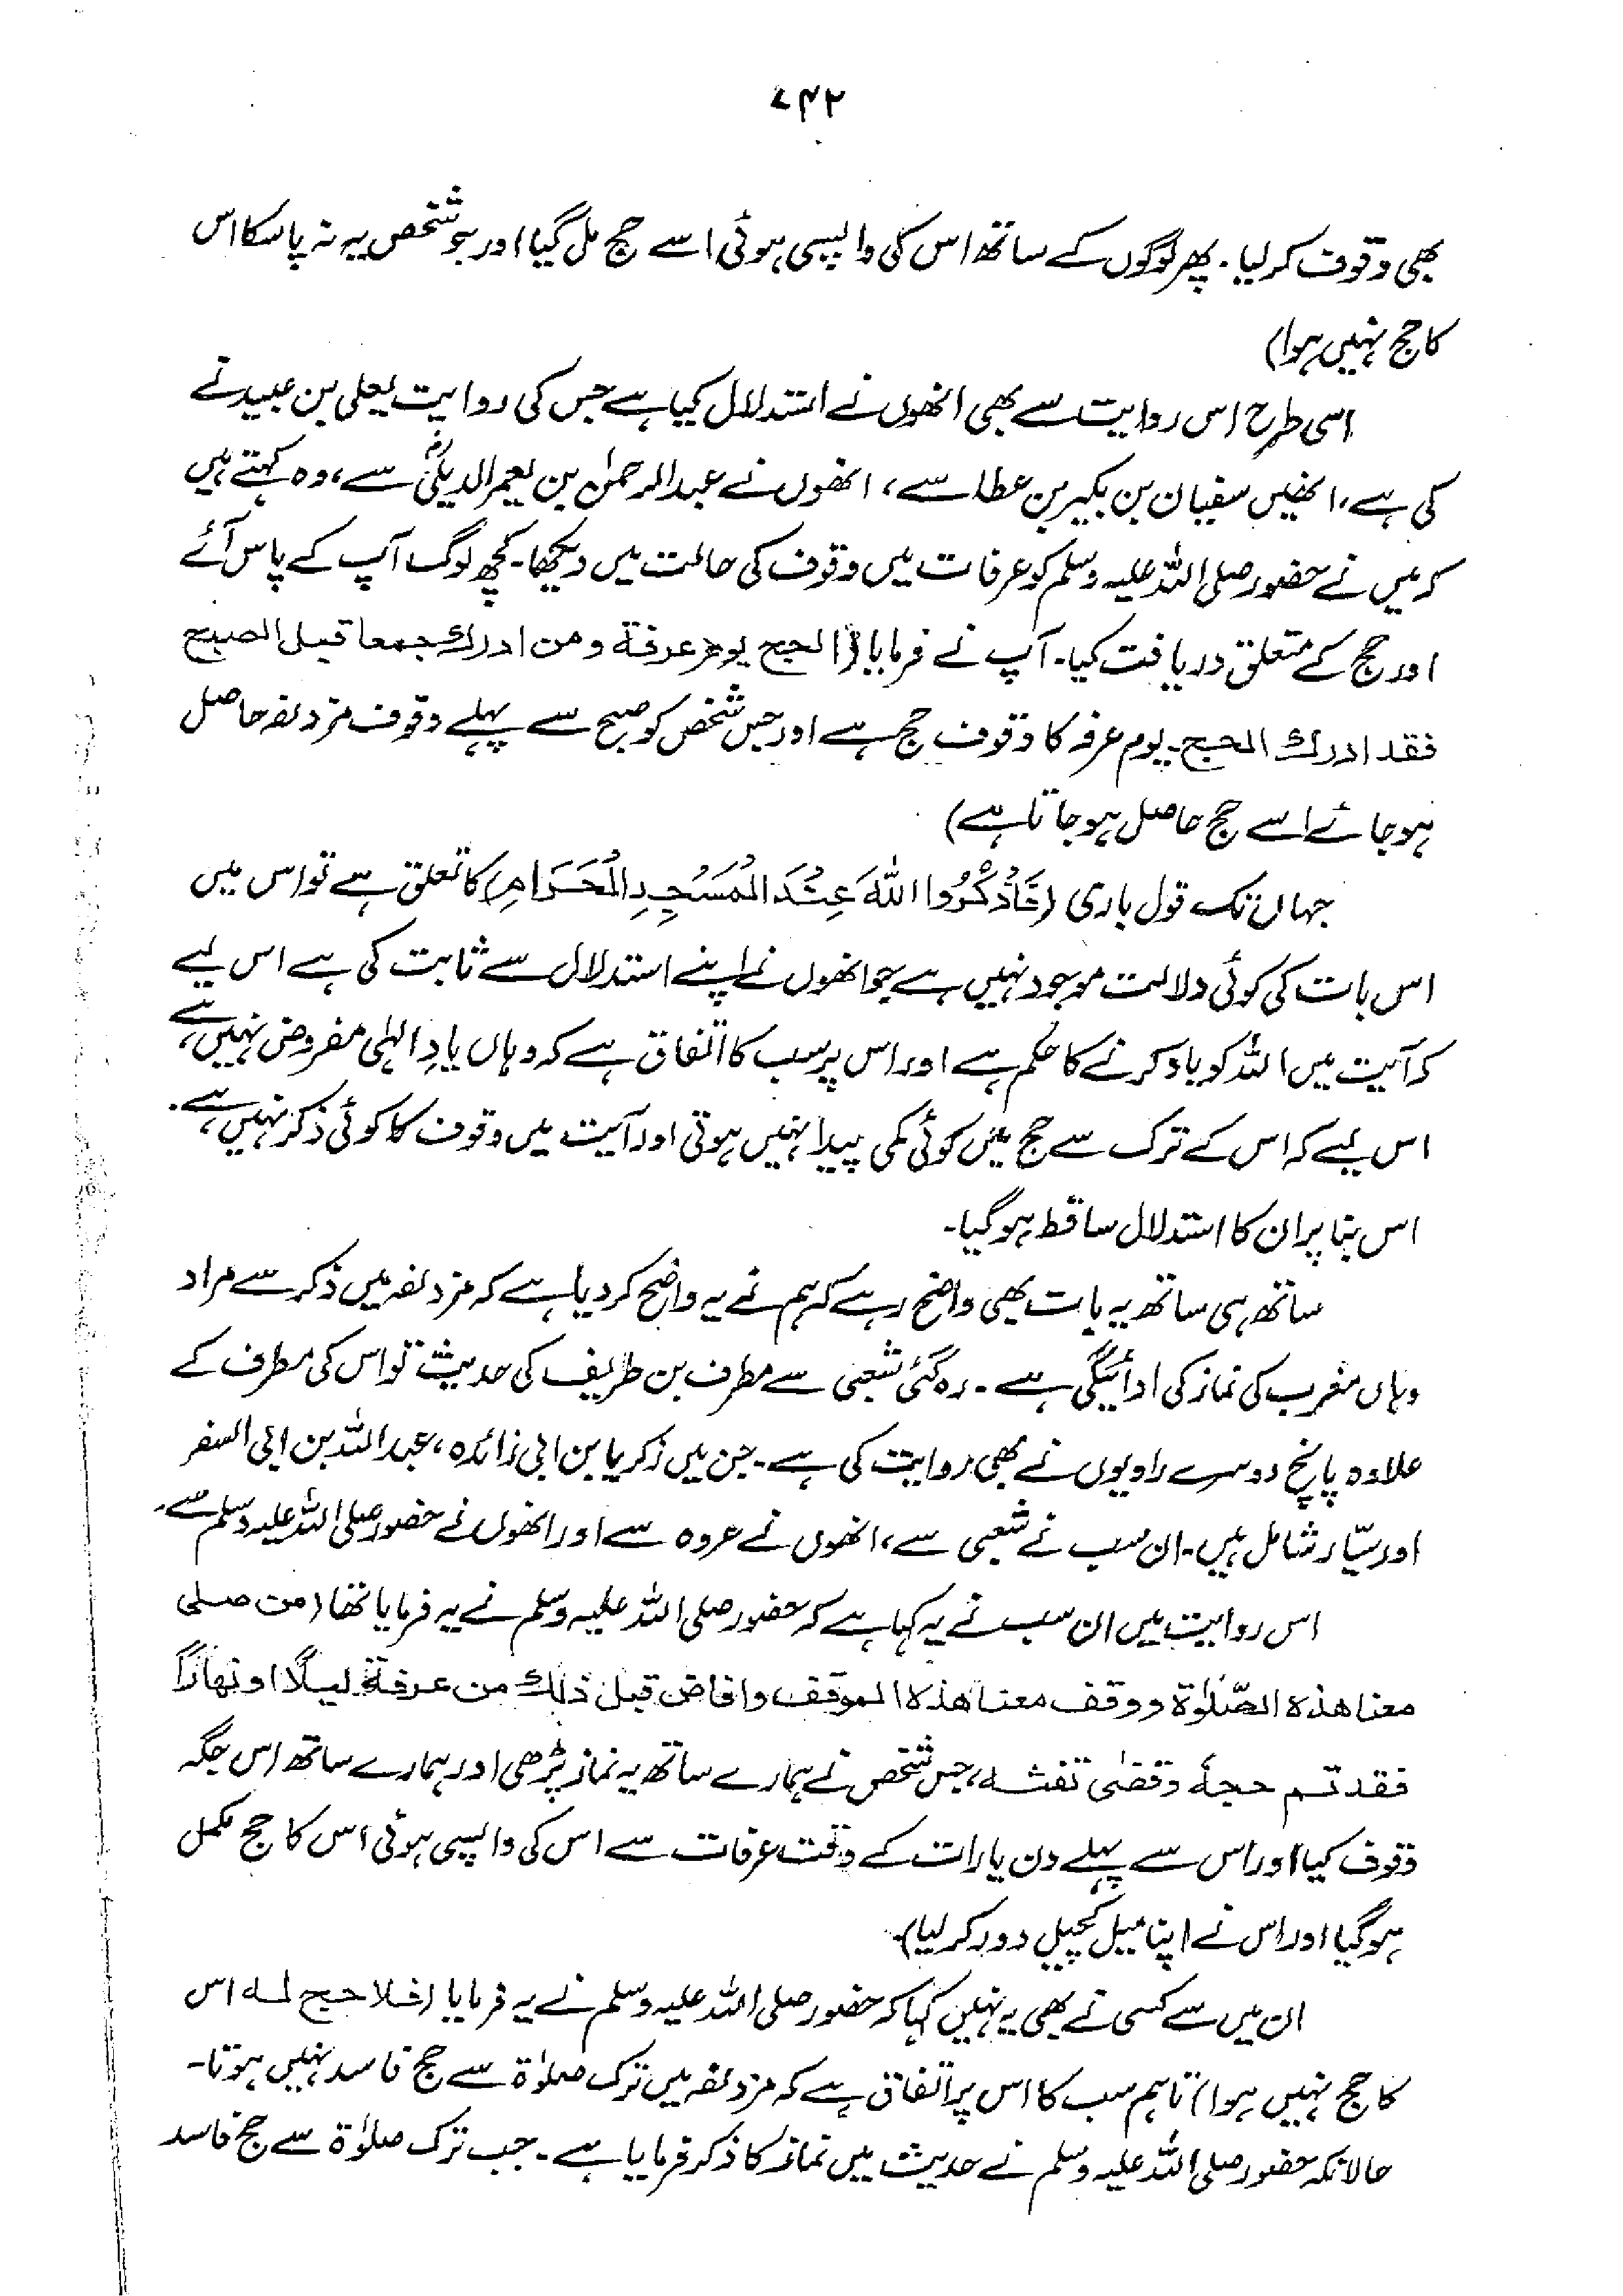 ۷۴۲
بھی وقوف کر لیا۔ پھر لوگوں کے ساتھ اس کی واپسی ہوئی اسے حج مل گیا اور جو شخص یہ نہ پا سکا اس
کا حج نہیں ہوا)
اسی طرح اس روایت سے بھی انھوں نے استدلال کیا ہے جس کی روایت یعلی بن عبید نے
کی ہے، انھیں سفیان بن بکیر بن عطا سے، انھوں نے عبدالرحمٰن بن یعمر الدیلیؓ سے، وہ کہتے ہیں
کہ میں نے حضور صلی اللہ علیہ وسلم کو عرفات میں وقوف کی حالت میں دیکھا۔ کچھ لوگ آپ کے پاس آئے
اور حج کے متعلق دریافت کیا۔ آپ نے فرمایا (الحج یوم عرفة ومن ادرك جمعا قبل الصبح
فقد ادرك الحج۔ یوم عرفہ کا وقوف حج ہے اور جس شخص کو صبح سے پہلے وقوف مزدلفہ حاصل
ہو جائے اسے حج حاصل ہو جاتا ہے)
جہاں تک قول باری (فَاذْكُرُوا اللهَ عِنْدَ الْمَسْجِدِ الْحَرَامِ) کا تعلق ہے تو اس میں
اس بات کی کوئی دلالت موجود نہیں ہے جو انھوں نے اپنے استدلال سے ثابت کی ہے اس لیے
کہ آیت میں اللہ کو یاد کرنے کا حکم ہے اور اس پر سب کا اتفاق ہے کہ وہاں یادِ الٰہی مفروض نہیں ہے،
اس لیے کہ اس کے ترک سے حج میں کوئی کمی پیدا نہیں ہوتی اور آیت میں وقوف کا کوئی ذکر نہیں ہے۔
اس بنا پر ان کا استدلال ساقط ہو گیا۔
ساتھ ہی ساتھ یہ بات بھی واضح رہے کہ ہم نے یہ واضح کر دیا ہے کہ مزدلفہ میں ذکر سے مراد
وہاں مغرب کی نماز کی ادائیگی ہے۔ رہ گئی شعبی سے مطرف بن طریف کی حدیث تو اس کی مطرف کے
علاوہ پانچ دوسرے راویوں نے بھی روایت کی ہے۔ جن میں زکریا بن ابی زائدہ، عبداللہ بن ابی السفر
اور سیّار شامل ہیں۔ ان سب نے شعبی سے، انھوں نے عروہ سے اور انھوں نے حضور صلی اللہ علیہ وسلم سے۔
اس روایت میں ان سب نے یہ کہا ہے کہ حضور صلی اللہ علیہ وسلم نے یہ فرمایا تھا (من صلی
معنا هذه الصّلوٰة ووقف معنا هذا الموقف وافاض قبل ذلك من عرفة ليلًا او نهارًا
فقد تم حجهٗ وقضیٰ تفثه، جس شخص نے ہمارے ساتھ یہ نماز پڑھی اور ہمارے ساتھ اس جگہ
وقوف کیا اور اس سے پہلے دن یا رات کے وقت عرفات سے اس کی واپسی ہوئی اس کا حج مکمل
ہو گیا اور اس نے اپنا میل کچیل دور کر لیا)۔
ان میں سے کسی نے بھی یہ نہیں کہا کہ حضور صلی اللہ علیہ وسلم نے یہ فرمایا (فلا حج له اس
کا حج نہیں ہوا) تاہم سب کا اس پر اتفاق ہے کہ مزدلفہ میں ترک صلوٰۃ سے حج فاسد نہیں ہوتا۔
حالانکہ حضور صلی اللہ علیہ وسلم نے حدیث میں نماز کا ذکر فرمایا ہے۔ جب ترک صلوٰۃ سے حج فاسد